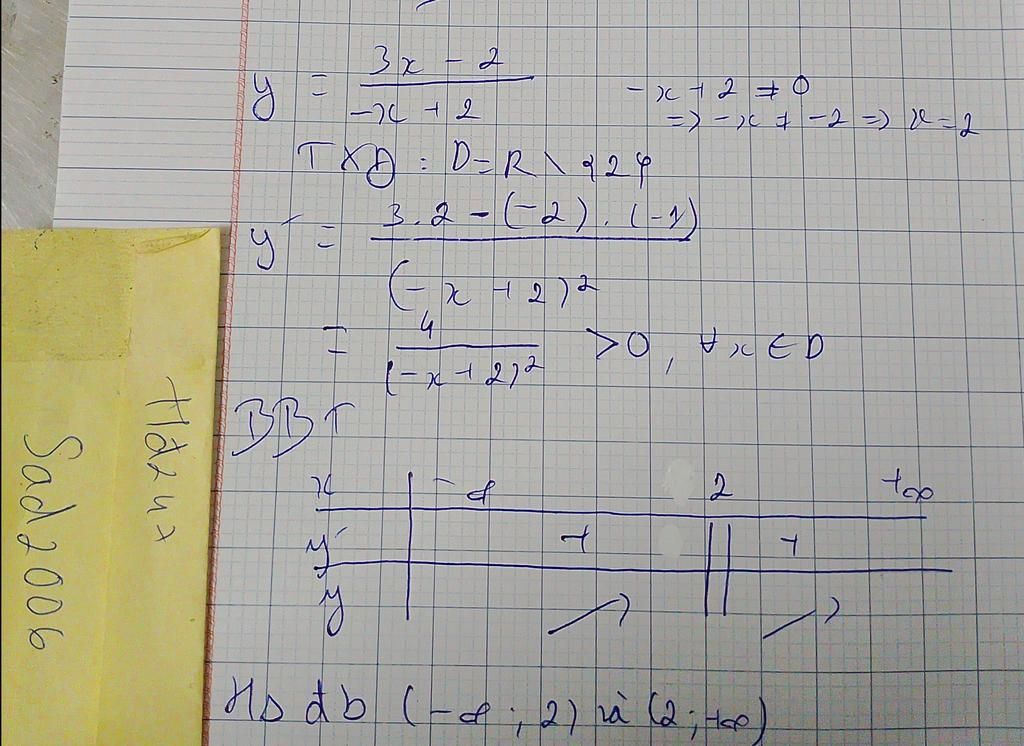 y = (3x - 2)/(-x + 2)    -x + 2 ≠ 0
=> -x ≠ -2 => x = 2
TXĐ : D = R \ {2}
y' = (3.2 - (-2).(-1))/(-x + 2)²
= 4/(-x + 2)² > 0, ∀x ∈ D
BBT
x -∞ 2 +∞
y' + || +
y ↗ || ↗
Hs đb (-∞ ; 2) và (2 ; +∞)
Sad2006